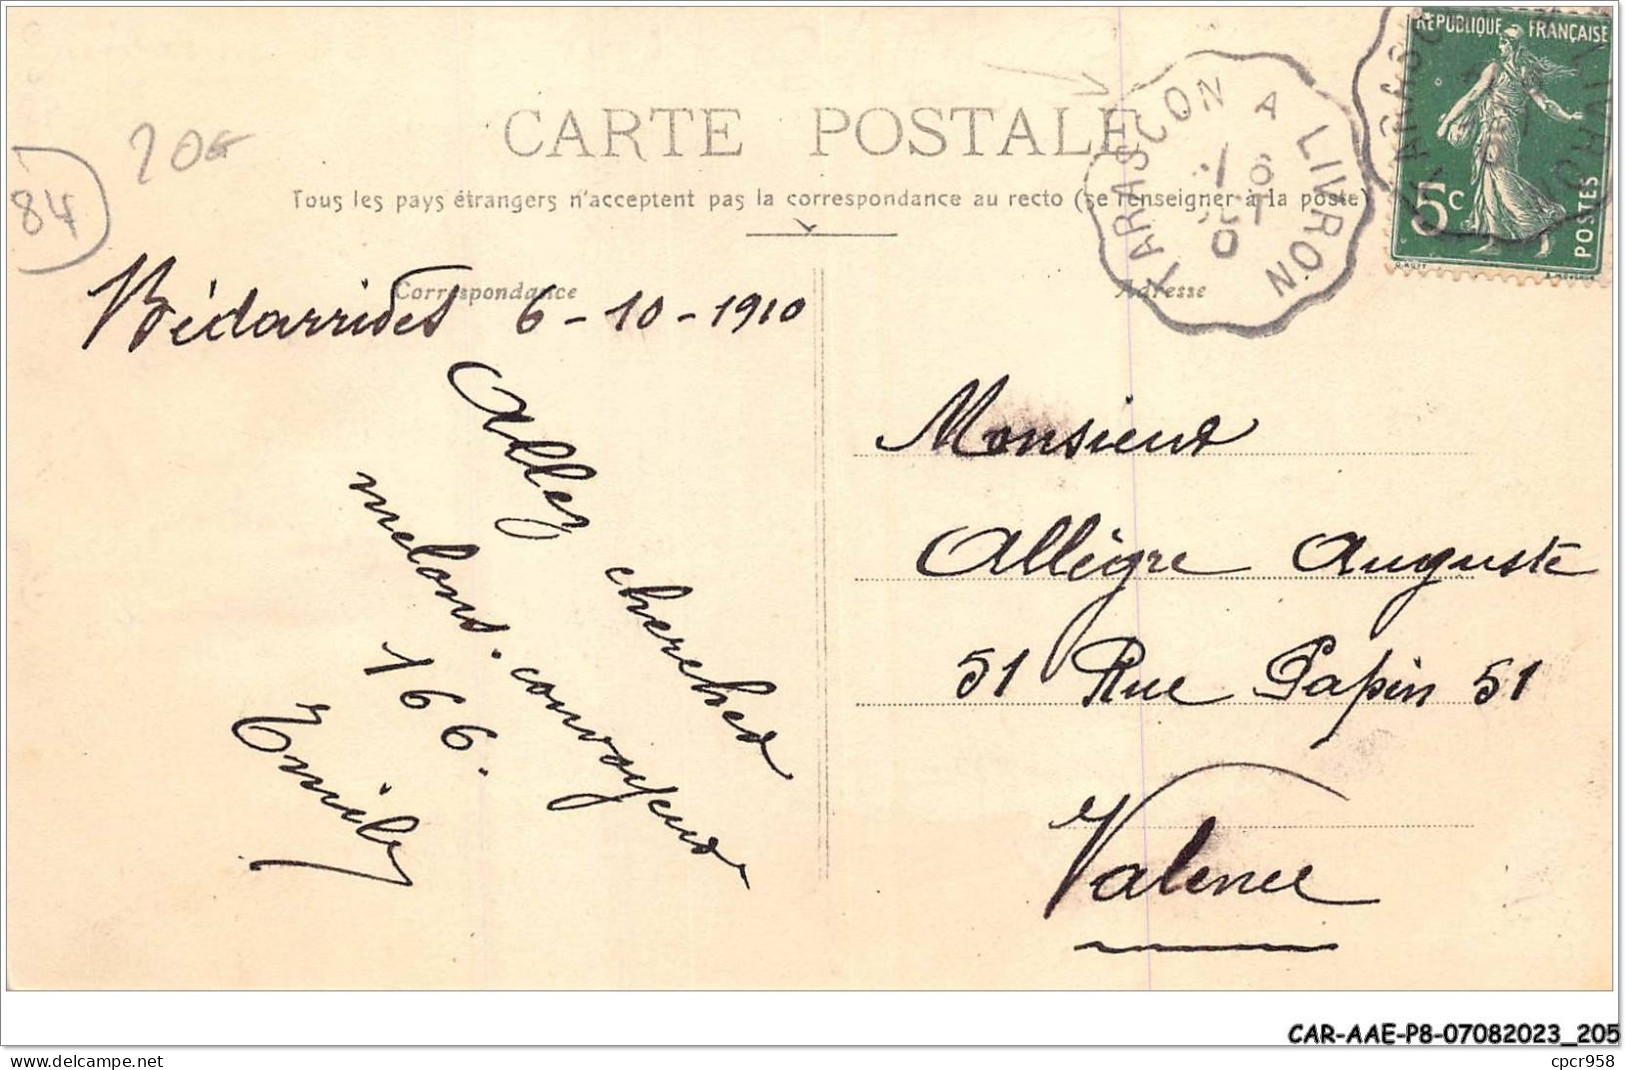 84
20€
CARTE POSTALE
Tous les pays étrangers n'acceptent pas la correspondance au recto (se renseigner à la poste)
TARASCON A LIVRON
6
OCT
10
RÉPUBLIQUE FRANÇAISE
5c
POSTES
Correspondance
Adresse
Bédarrides 6-10-1910
Allez chercher
melons. convoyeur
166.
Emile
Monsieur
Allègre Auguste
51 Rue Papin 51
Valence
CAR-AAE-P8-07082023_205
cpcr958